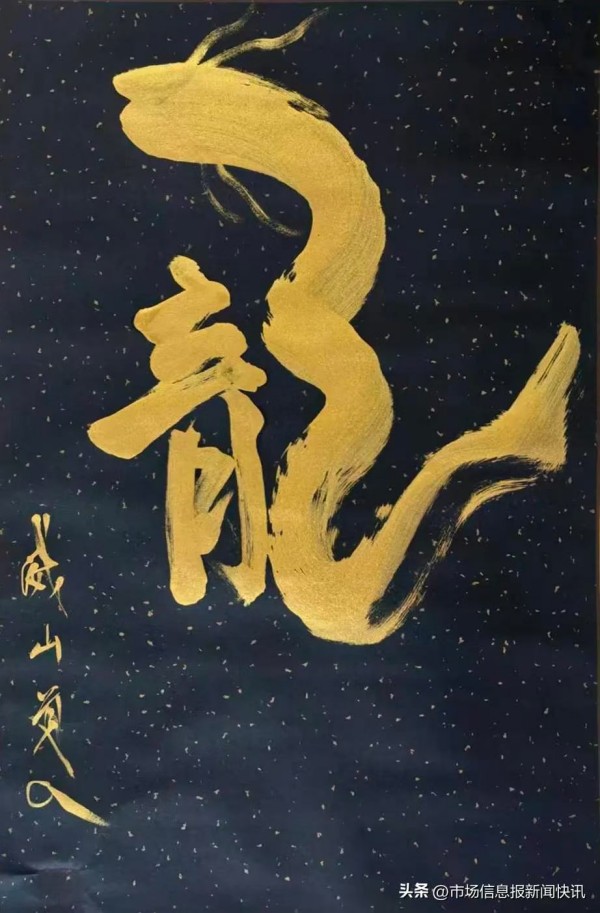 龍
威山
头条 @市场信息报新闻快讯